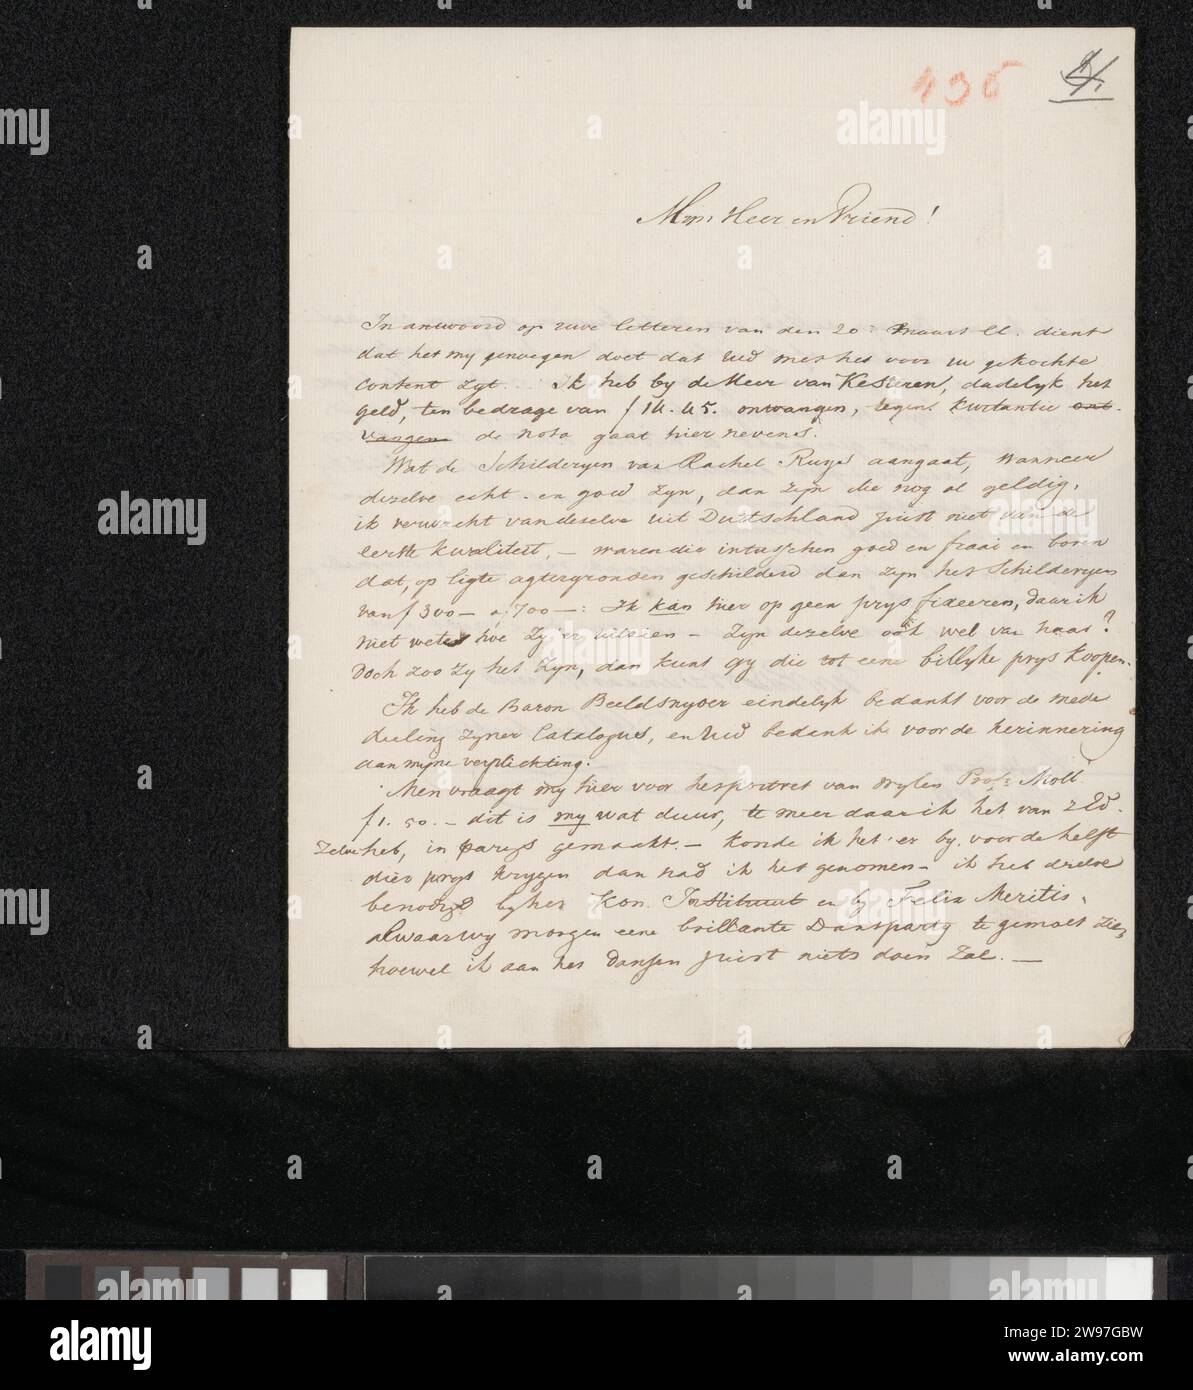 196
Mijn Heer en Vriend!
In antwoord op uwe letteren van den 20: Maart ll. dient
dat het my genoegen doet dat UEd met het voor u gekochte
content zyt. Ik heb by de Heer van Kesteren, dadelyk het
geld, ten bedrage van f 14.45. ontvangen, tegen kwitantie ont-
vangen de nota gaat hier nevens.
Wat de Schilderyen van Rachel Ruys aangaat, wanneer
dezelve echt en goed zyn, dan zijn die nog al geldig,
ik verwacht van deselve uit Duitschland juist niet van de
eerste kwaliteit, – waren die intusschen goed en fraai en boven
dat, op ligte agtergronden geschilderd dan zyn het Schilderyen
van f 300 – à 700 –: Ik kan hier op geen prys fixeeren, daar ik
niet weet hoe zy er uitzien – zyn dezelve ook wel van haar?
Doch zoo zy het zyn, dan kunt gy die tot eene billyke prys koopen.
Ik heb de Baron Beeldsnyder eindelyk bedankt voor de mede
deeling zyner Catalogus, en UEd bedank ik voor de herinnering
aan myne verplichting.
Men vraagt my hier voor het portret van wylen Profr Moll
f 1.50. – dit is my wat duur, te meer daar ik het van ZEd.
Zelve heb, in parys gemaakt. – konde ik het er by voor de helft
dier prys krygen dan had ik het genomen – ik heb dezelve
benodigd by het Kon. Instituut en by Felix Meritis,
alwaar wy morgen eene brillante Dansparty te gemoet zien,
hoewel ik aan het dansen juist niets doen zal. —
alamy
alamy
alamy
alamy
alamy
alamy
alamy
Image ID: 2W97GBW
www.alamy.com